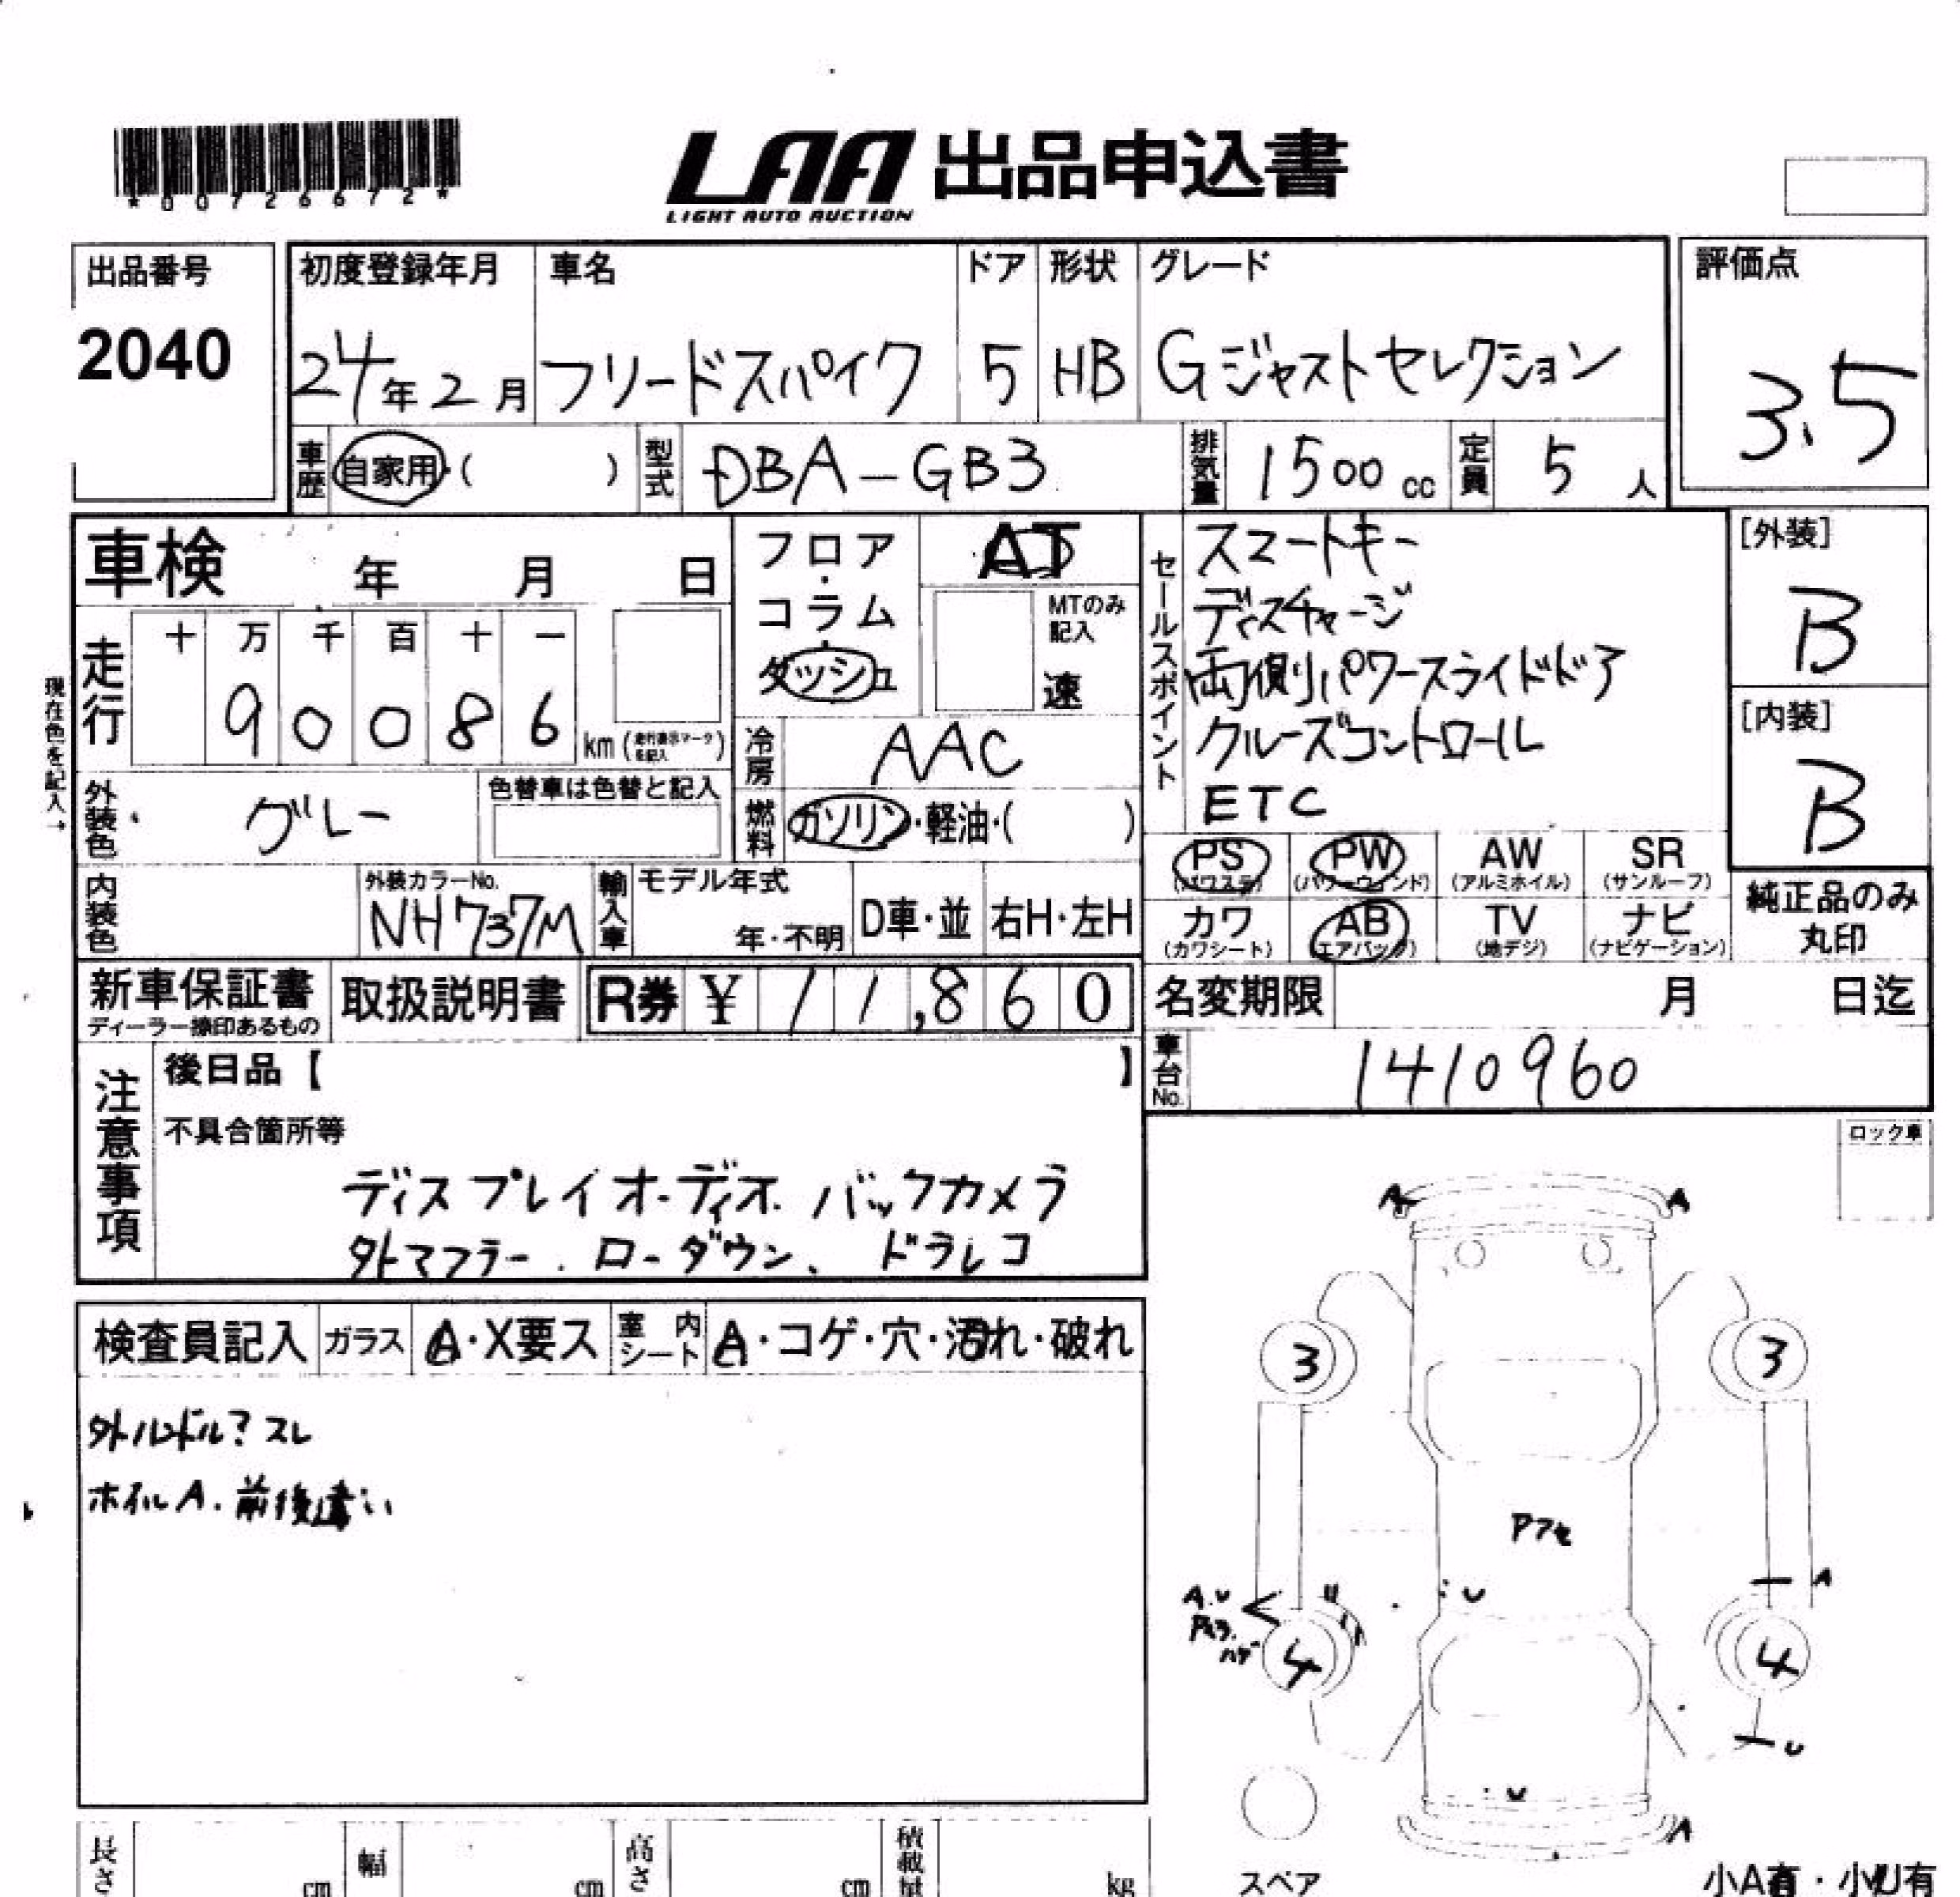 *00726672*
LAA 出品申込書
LIGHT AUTO AUCTION
出品番号
2040
初度登録年月
24年2月
車名
フリードスパイク
ドア
5
形状
HB
グレード
Gジャストセレクション
評価点
3.5
車歴 自家用・( )
型式 DBA-GB3
排気量 1500cc
定員 5人
車検 年 月 日
フロア・コラム・ダッシュ
AT
MTのみ記入
速
セールスポイント
スマートキー
ディスチャージ
両側パワースライドドア
クルーズコントロール
ETC
[外装]
B
[内装]
B
現在色を記入→
走行
十 万 千 百 十 一
9 0 0 8 6 km (走行表示マークを記入)
冷房 AAC
外装色 グレー
色替車は色替と記入
燃料 ガソリン・軽油・( )
PS (パワステ)
PW (パワーウインド)
AW (アルミホイル)
SR (サンルーフ)
カワ (カワシート)
AB (エアバック)
TV (地デジ)
ナビ (ナビゲーション)
純正品のみ
丸印
内装色
外装カラーNo.
NH737M
輸入車
モデル年式
年・不明
D車・並
右H・左H
新車保証書
ディーラー捺印あるもの
取扱説明書
R券 ¥ 11,860
名変期限 月 日迄
車台No. 1410960
注意事項
後日品【 】
不具合箇所等
ディスプレイオーディオ. バックカメラ
外マフラー. ローダウン、ドラレコ
ロック車
検査員記入
ガラス A・X要ス
室内シート A・コゲ・穴・汚れ・破れ
外ルドル?スレ
ホイルA. 前後違い
A A
3 3
Pフセ
A.U
U
A
4 4
U
U
A
スペア
小A有・小U有
長さ cm
幅 cm
高さ cm
積載量 kg